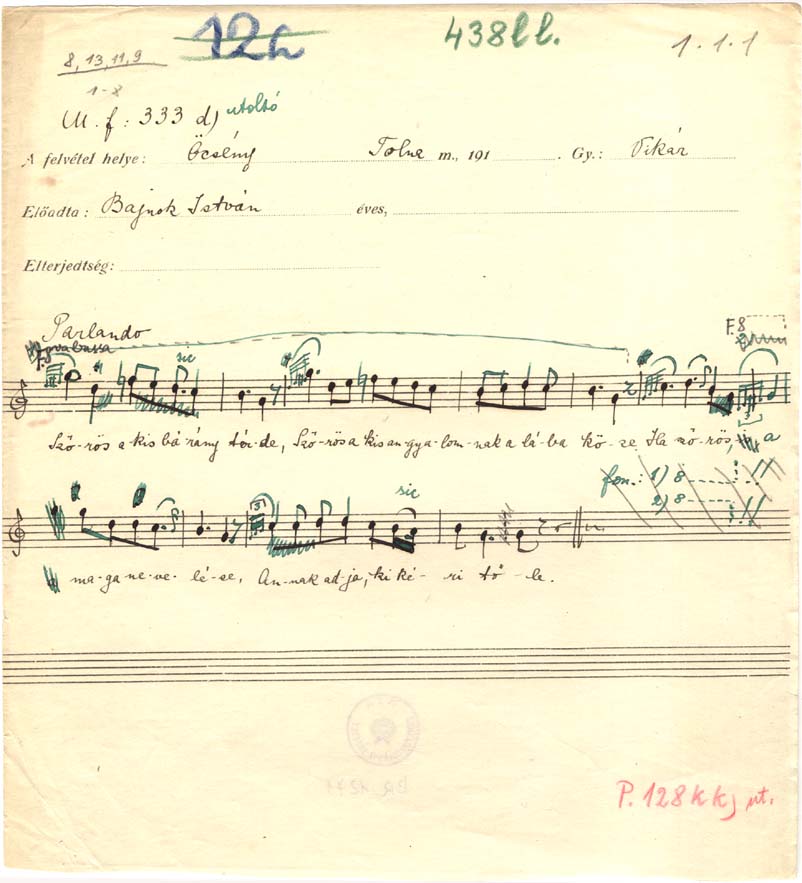 12a 438ll. 1.1.1
8, 13, 11, 9
1-8
M. f: 333 d) utolsó
A felvétel helye: Őcsény Tolna m., 191 . Gy.: Vikár
Előadta: Bajnok István éves,
Elterjedtség:
Parlando
F. 8
8va bassa sic
Sző-rös a kis bá-rány tér-de, Sző-rös a kis an-gya-lom-nak a lá-ba kö-ze Ha ző-rös, a
fon.: 1) 8
2) 8
3
sic
ma-ga ne-ve-lé-se, An-nak ad-ja, ki ké-ri tő-le.
P. 128 kk)